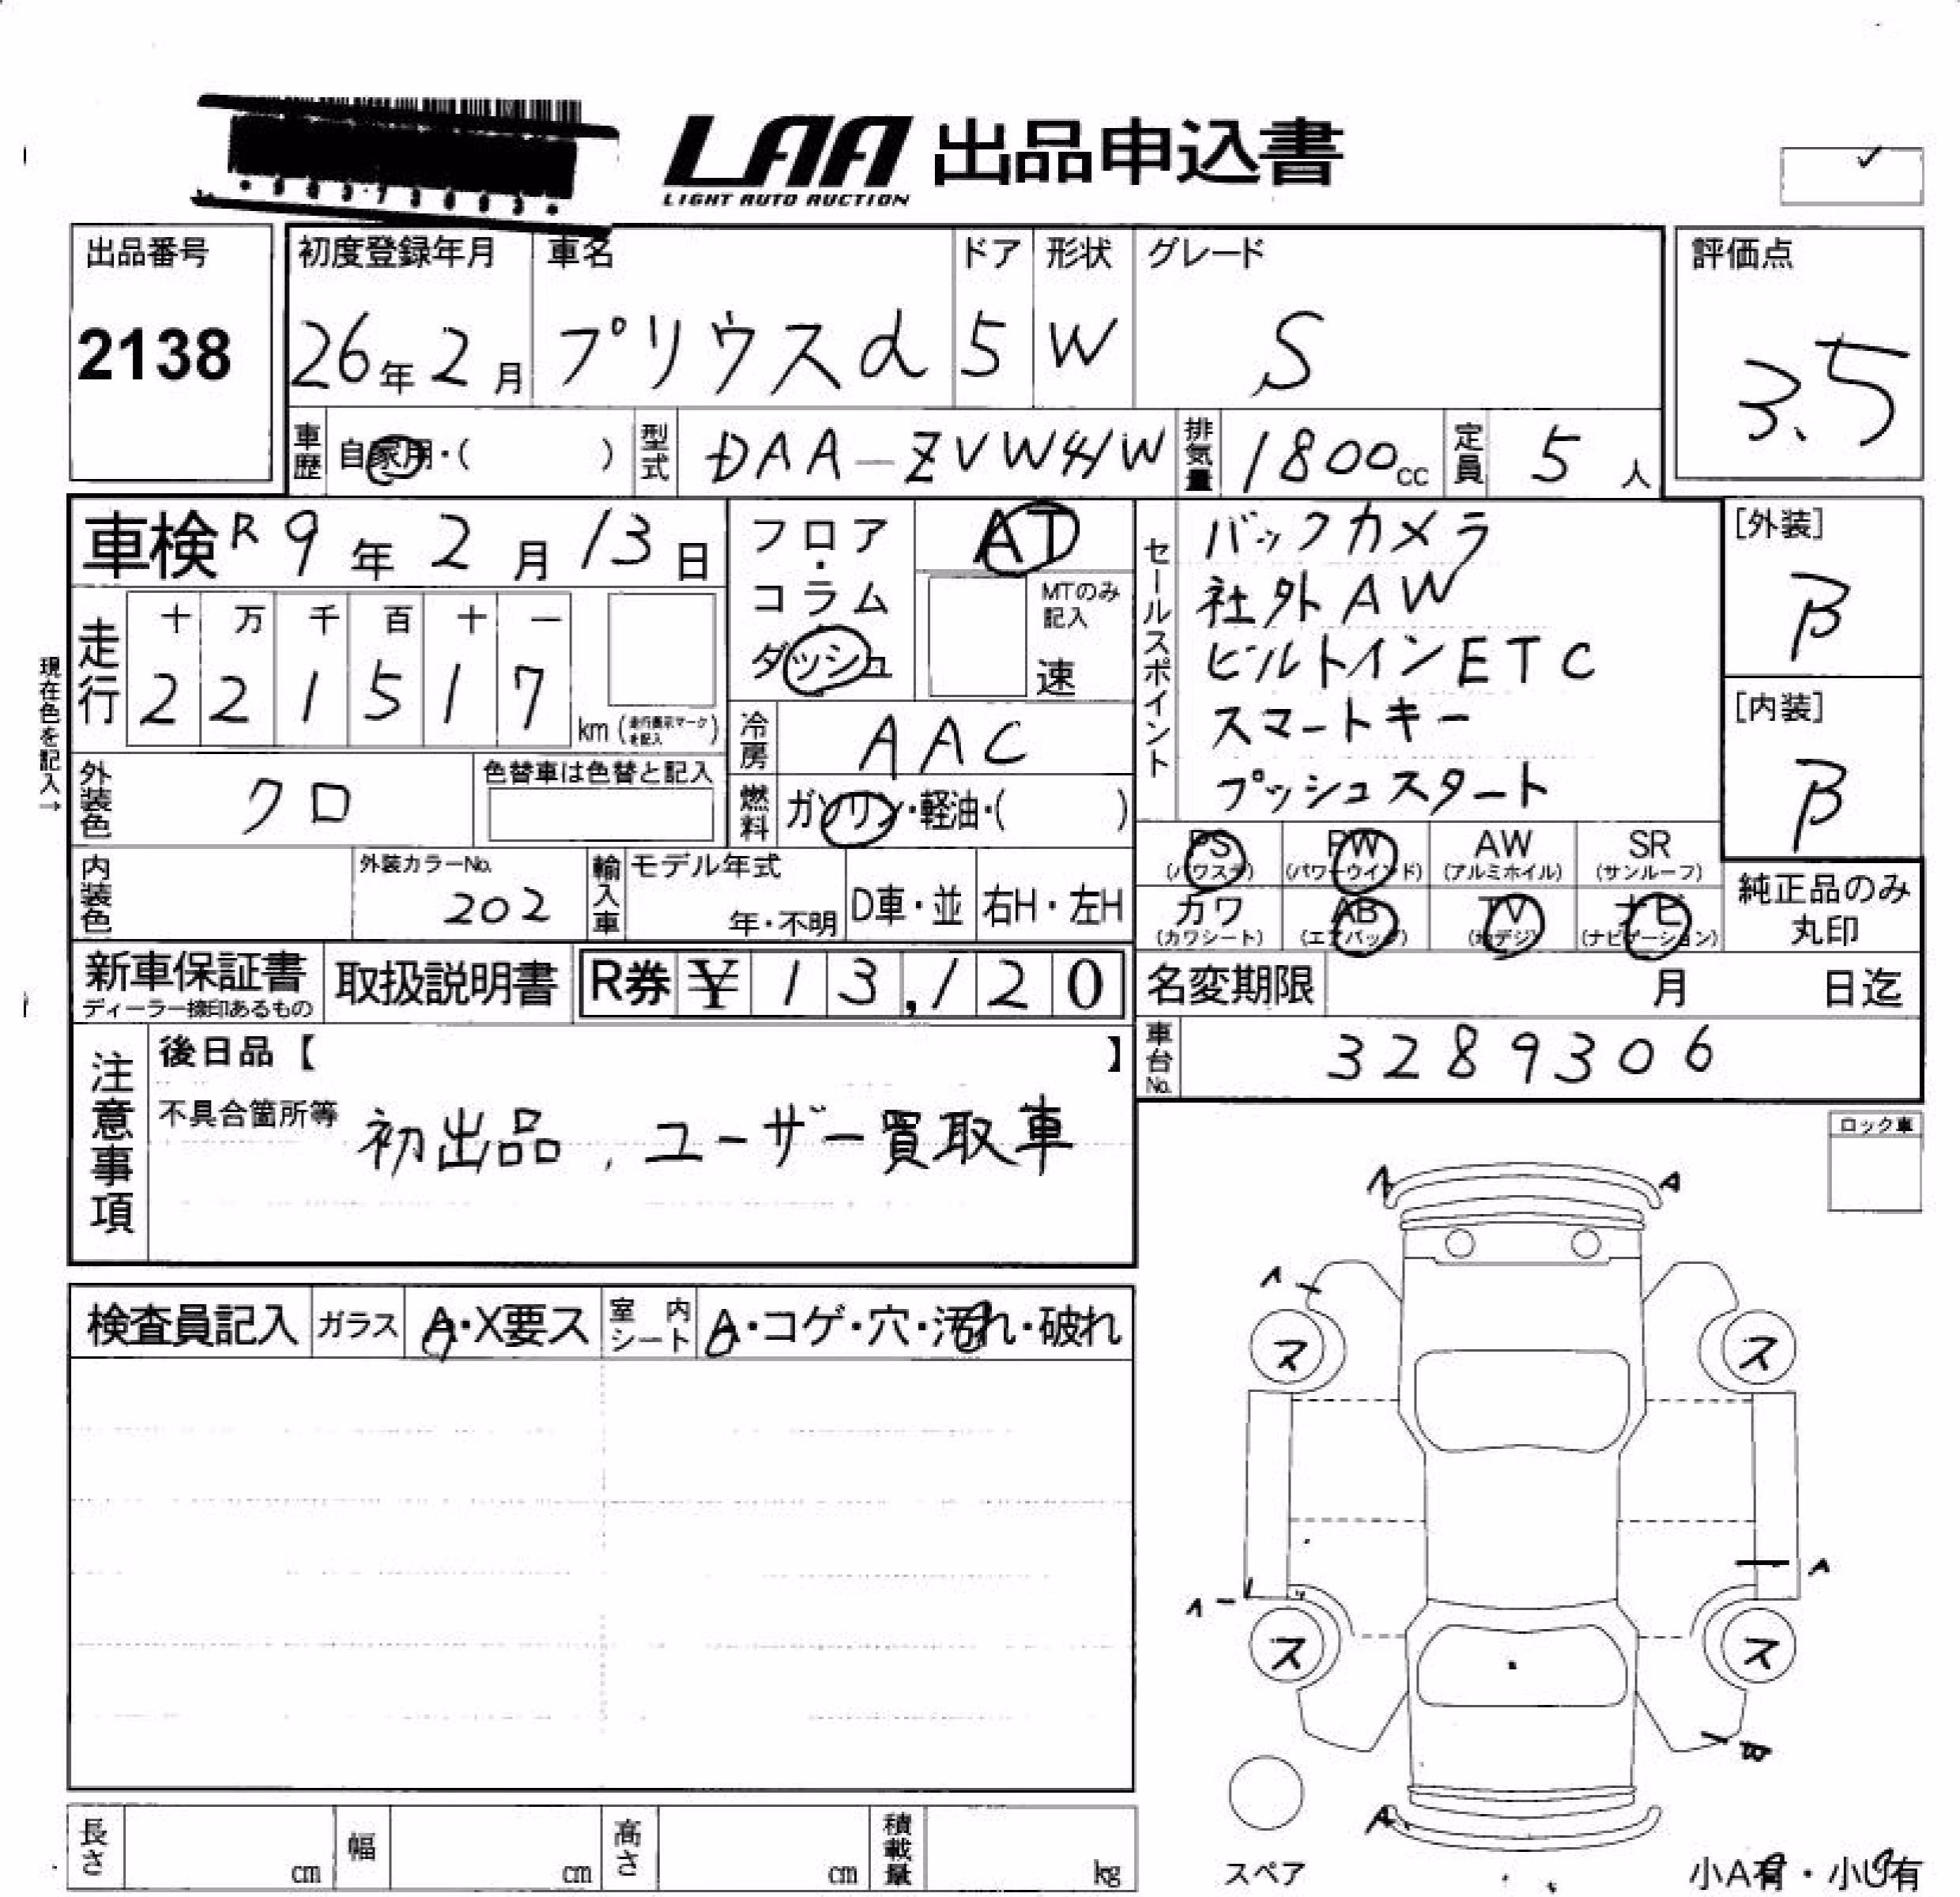 LAA 出品申込書
LIGHT AUTO AUCTION
出品番号
2138
初度登録年月 車名 ドア 形状 グレード
26年 2月 プリウスα 5 W S
評価点
3.5
車歴 自家用・( ) 型式 DAA-ZVW41W 排気量 1800cc 定員 5人
車検 R9年 2月 13日
フロア・コラム ダッシュ
AT
MTのみ記入
速
現在色を記入→
走行 十 万 千 百 十 一
2 2 1 5 1 7 km (走行表示マークを記入)
冷房 AAC
外装色 クロ 色替車は色替と記入
燃料 ガソリン・軽油・( )
内装色 外装カラーNo. 202
輸入車 モデル年式 年・不明 D車・並 右H・左H
新車保証書
ディーラー捺印あるもの
取扱説明書 R券 ¥ 13,120
セールスポイント
バックカメラ
社外AW
ビルトインETC
スマートキー
プッシュスタート
[外装]
B
[内装]
B
PS (パワステ) PW (パワーウインド) AW (アルミホイル) SR (サンルーフ)
カワ (カワシート) AB (エアバッグ) TV (地デジ) ナビ (ナビゲーション)
純正品のみ丸印
名変期限 月 日迄
車台No. 3289306
注意事項
後日品【 】
不具合箇所等 初出品、ユーザー買取車
ロック車
検査員記入 ガラス A・X要ス 室内シート A・コゲ・穴・汚れ・破れ
A
A
A
ス ス
A
A
ス ス
A
スペア
小A有・小U有
長さ cm 幅 cm 高さ cm 積載量 kg